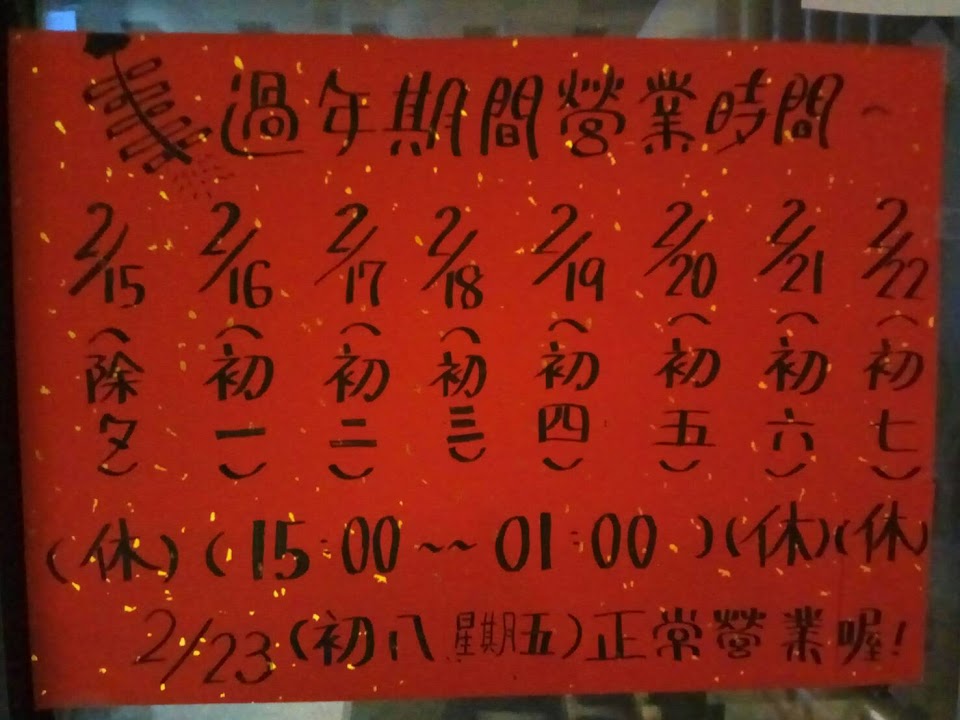 過年期間營業時間~
2/15 2/16 2/17 2/18 2/19 2/20 2/21 2/22
(除夕) (初一) (初二) (初三) (初四) (初五) (初六) (初七)
(休) (15:00~~01:00) (休) (休)
2/23 (初八 星期五) 正常營業喔!